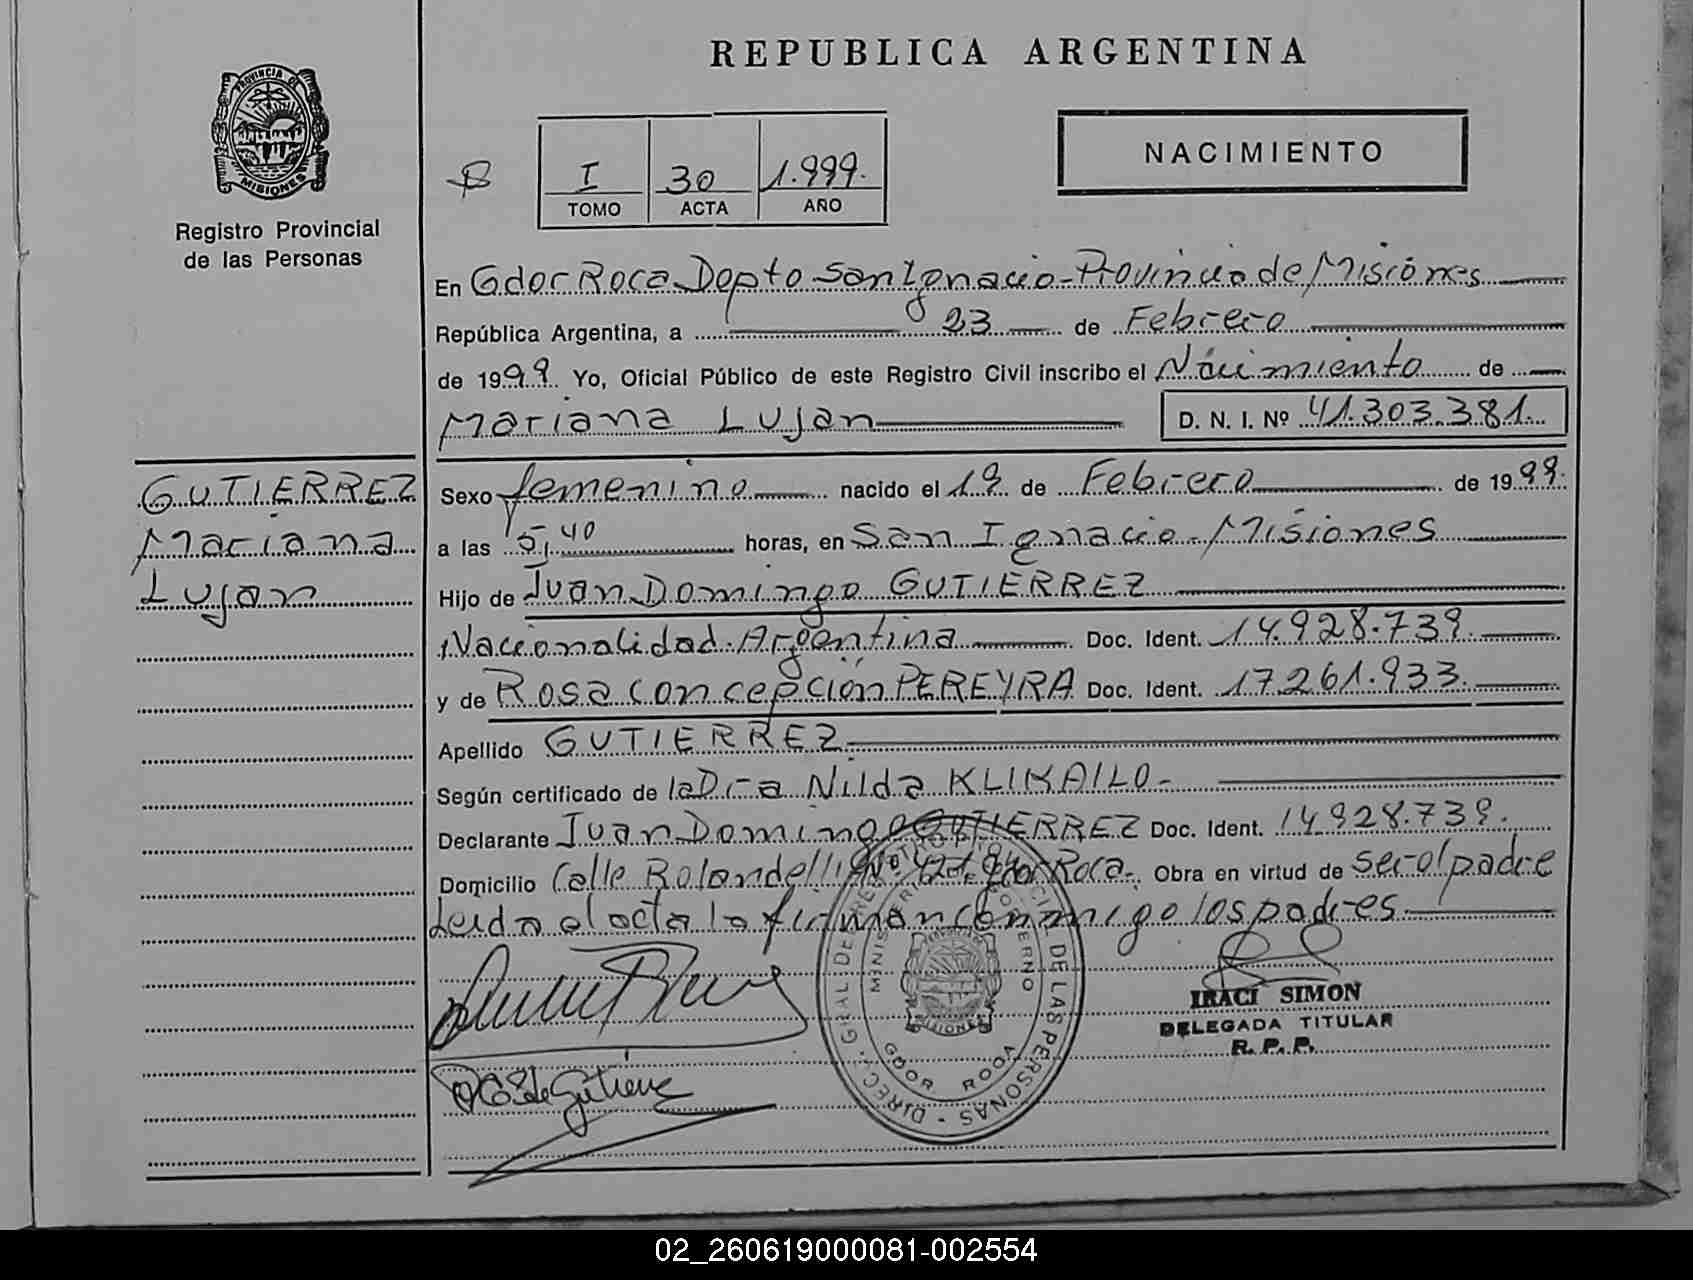 REPUBLICA ARGENTINA
PROVINCIA DE
MISIONES
Registro Provincial
de las Personas
I 30 1.999.
TOMO ACTA AÑO
NACIMIENTO
En Gdor Roca Dopto San Ignacio - Provincia de Misiones
República Argentina, a 23 de Febrero
de 1999. Yo, Oficial Público de este Registro Civil inscribo el Nacimiento de
Mariana Lujan D. N. I. Nº 41.303.381.
GUTIERREZ
Mariana
Lujan
Sexo femenino nacido el 19 de Febrero de 1999.
a las 5,40 horas, en San Ignacio - Misiones
Hijo de Juan Domingo GUTIERREZ
Nacionalidad Argentina Doc. Ident. 14.928.739.
y de Rosa Concepción PEREYRA Doc. Ident. 17.261.933.
Apellido GUTIERREZ
Según certificado de la Dra Nilda KLIKAILO-
Declarante Juan Domingo GUTIERREZ Doc. Ident. 14928.739.
Domicilio Calle Rolandelli Nº Gdor Roca. Obra en virtud de ser el padre
Leida el acta la firman conmigo los padres
IRACI SIMON
DELEGADA TITULAR
R. P. P.
DE LAS PERSONAS - DIREC. GRAL DE
GDOR ROCA
MISIONES
02_260619000081-002554